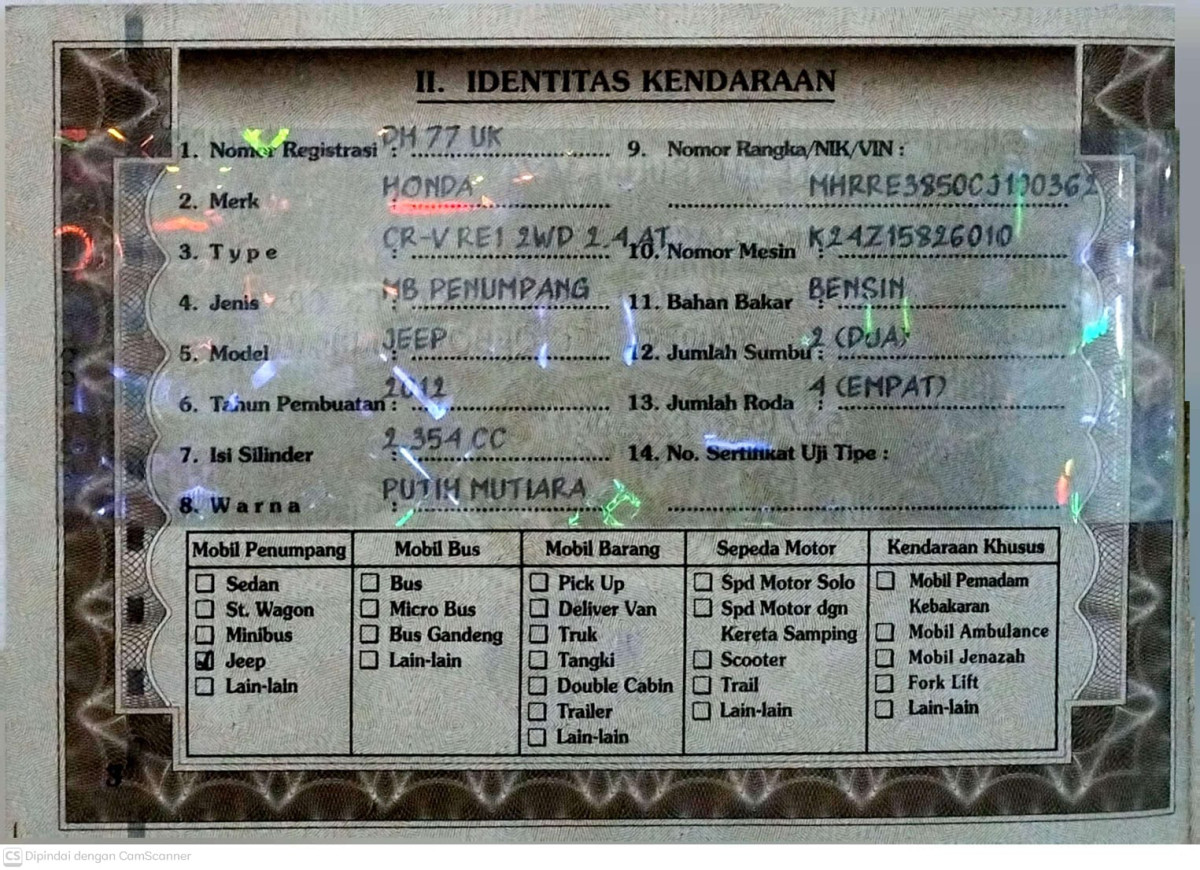 II. IDENTITAS KENDARAAN
1. Nomor Registrasi : DH 77 UK
2. Merk : HONDA
3. Type : CR-V RE1 2WD 2.4 AT
4. Jenis : MB PENUMPANG
5. Model : JEEP
6. Tahun Pembuatan : 2012
7. Isi Silinder : 2.354 CC
8. Warna : PUTIH MUTIARA
9. Nomor Rangka/NIK/VIN :
MHRRE3850CJ100362
10. Nomor Mesin : K24Z15826010
11. Bahan Bakar : BENSIN
12. Jumlah Sumbu : 2 (DUA)
13. Jumlah Roda : 4 (EMPAT)
14. No. Sertifikat Uji Tipe :
Mobil Penumpang
Sedan
St. Wagon
Minibus
Jeep
Lain-lain
Mobil Bus
Bus
Micro Bus
Bus Gandeng
Lain-lain
Mobil Barang
Pick Up
Deliver Van
Truk
Tangki
Double Cabin
Trailer
Lain-lain
Sepeda Motor
Spd Motor Solo
Spd Motor dgn
Kereta Samping
Scooter
Trail
Lain-lain
Kendaraan Khusus
Mobil Pemadam
Kebakaran
Mobil Ambulance
Mobil Jenazah
Fork Lift
Lain-lain
CS Dipindai dengan CamScanner